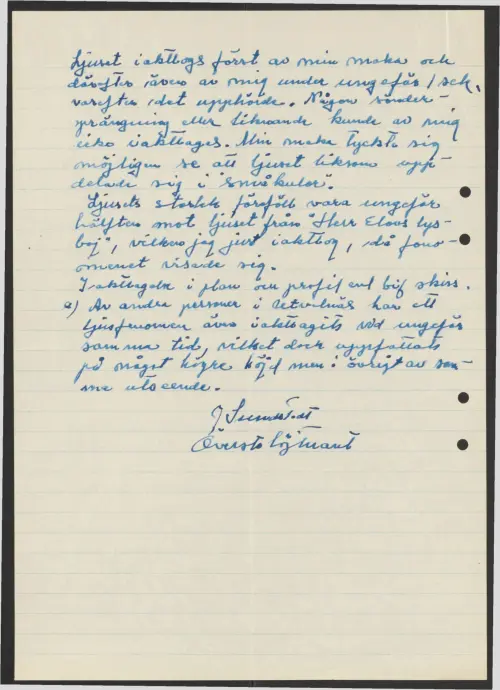 Ljuset iakttogs först av min maka och
därefter även av mig under ungefär 1 sek,
varefter det upphörde. Någon sönder-
sprängning eller liknande kunde av mig
icke iakttages. Min maka tyckte sig
möjligen se att ljuset liksom upp-
delade sig i "småkulor".
Ljusets storlek föreföll vara ungefär
hälften mot ljuset från "Herr Elovs lys-
boj", vilken jag just iakttog, då feno-
menet visade sig.
Iakttagelse i plan och profil enl bif skiss.
a) Av andra personer i har ett
ljusfenomen även iakttagits vid ungefär
samma tid, vilket dock uppfattats
på något högre höjd men i övrigt av sam-
ma utseende.
J
Överstelöjtnant